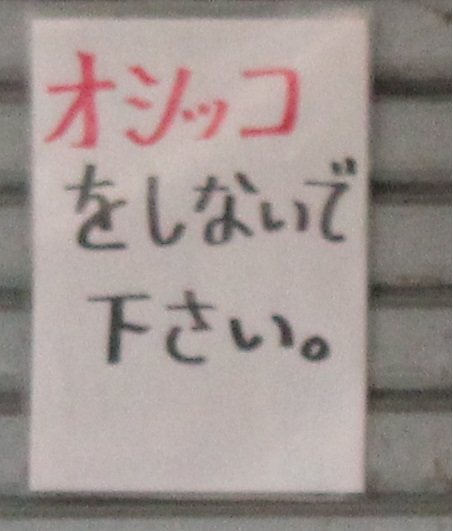 オシッコ
をしないで
下さい。